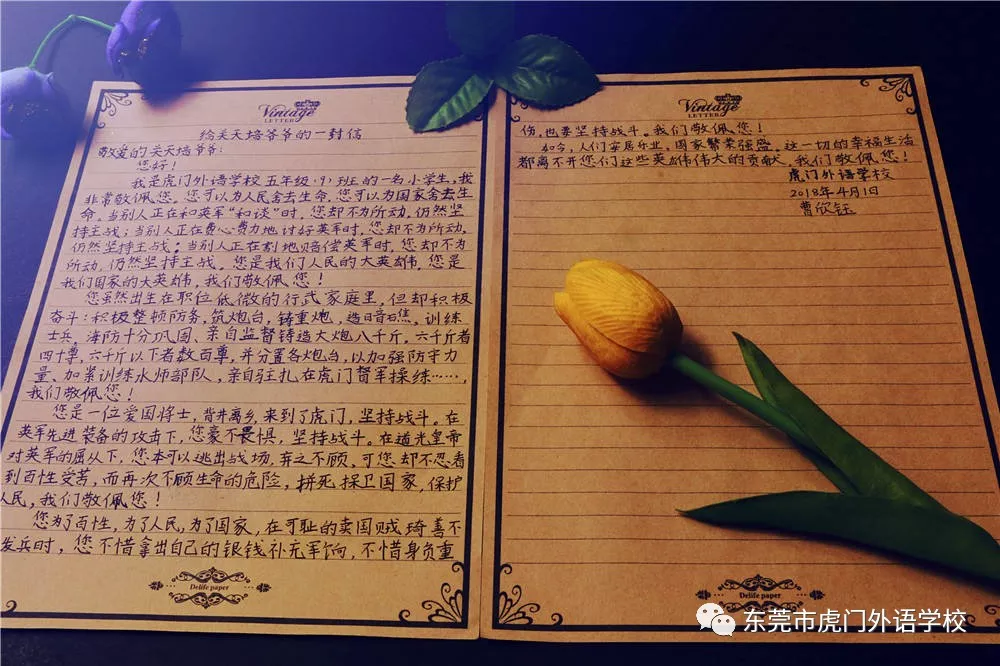 Vintage
LETTER
给关天培爷爷的一封信
敬爱的关天培爷爷：
您好！
我是虎门外语学校五年级（9）班的一名小学生，我
非常敬佩您。您可以为人民舍去生命，您可以为国家舍去生
命。当别人正在和英军“和谈”时，您却不为所动，仍然坚
持主战；当别人正在费心费力地讨好英军时，您却不为所动，
仍然坚持主战；当别人正在割地赔偿英军时，您却不为
所动，仍然坚持主战。您是我们人民的大英雄，您是
我们国家的大英雄，我们敬佩您！
您虽然出生在职位低微的行武家庭里，但却积极
奋斗：积极整顿防务，筑炮台，铸重炮，造暗礁，训练
士兵，海防十分巩固、亲自监督铸造大炮八千斤，六千斤者
四十尊，六千斤以下者数百尊，并分置各炮台，以加强防守力
量、加紧训练水师部队，亲自驻扎在虎门督军操练……，
我们敬佩您！
您是一位爱国将士，背井离乡，来到了虎门，坚持战斗。在
英军先进装备的攻击下，您豪不畏惧，坚持战斗。在道光皇帝
对英军的屈从下，您本可以逃出战场，弃之不顾，可您却不忍看
到百姓受苦，而再次不顾生命的危险，拼死保卫国家，保护
人民，我们敬佩您！
您为了百姓，为了人民，为了国家，在可耻的卖国贼琦善不
发兵时，您不惜拿出自己的银钱补充军饷，不惜身负重
Delife paper
Vintage
LETTER
伤，也要坚持战斗。我们敬佩您！
如今，人们安居乐业，国家繁荣强盛。这一切的幸福生活
都离不开您们这些英雄伟大的贡献，我们敬佩您！
虎门外语学校
2018年4月1日
曹欣钰
Delife paper
东莞市虎门外语学校